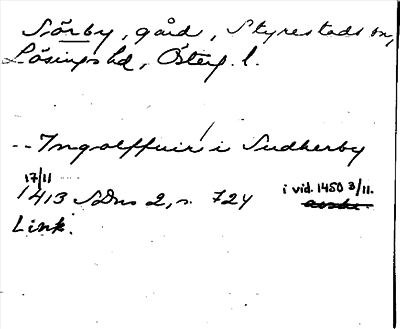 Sörby, gård, Styrestads sn,
Lösings hd, Österg. l.
-- Ingolffuir i Sudherby
17/11
1413 SDns 2, s. 724 i vid. 1450 3/11.
Link.